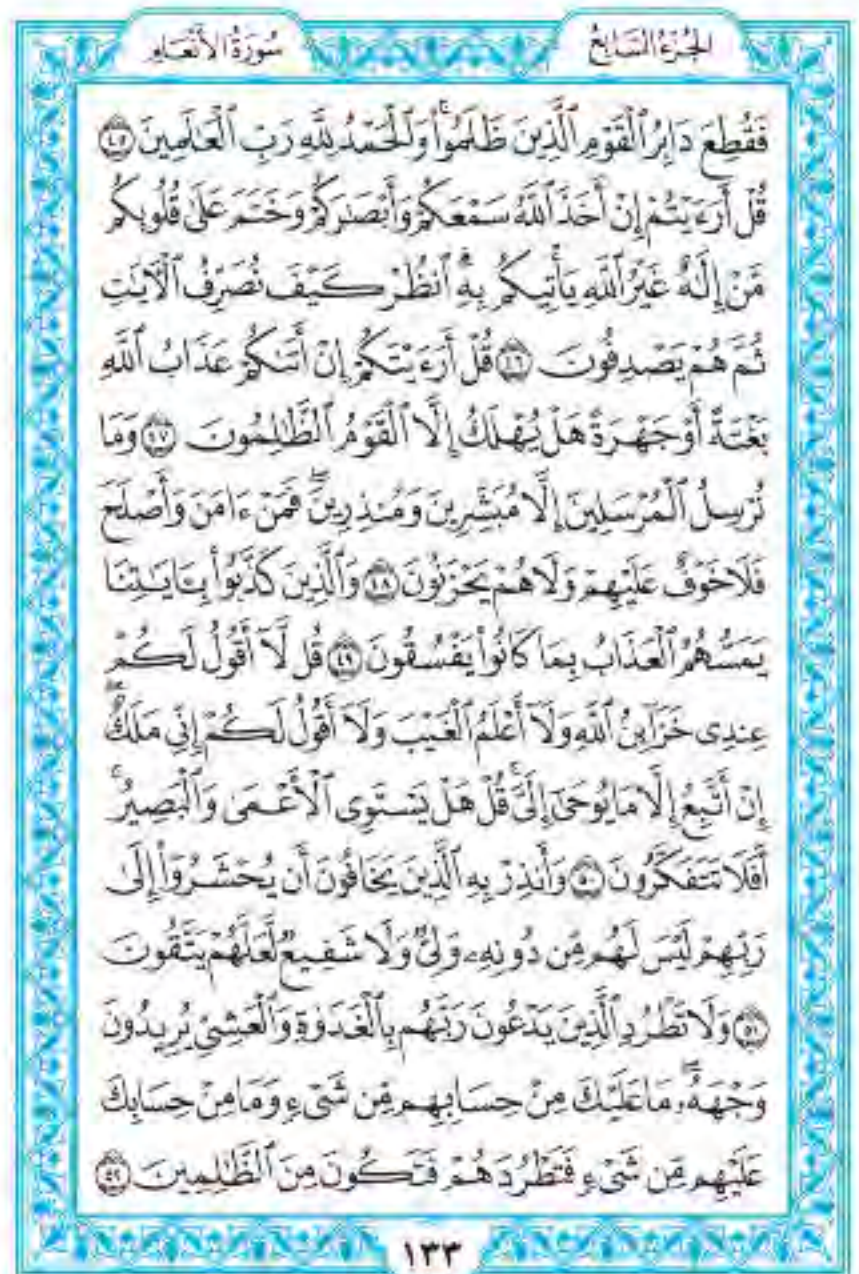 الجزء السابع
سورة الأنعام
فَقُطِعَ دَابِرُ ٱلْقَوْمِ ٱلَّذِينَ ظَلَمُوا۟ۚ وَٱلْحَمْدُ لِلَّهِ رَبِّ ٱلْعَٰلَمِينَ ٤٥
قُلْ أَرَءَيْتُمْ إِنْ أَخَذَ ٱللَّهُ سَمْعَكُمْ وَأَبْصَٰرَكُمْ وَخَتَمَ عَلَىٰ قُلُوبِكُم
مَّنْ إِلَٰهٌ غَيْرُ ٱللَّهِ يَأْتِيكُم بِهِۗ ٱنظُرْ كَيْفَ نُصَرِّفُ ٱلْءَايَٰتِ
ثُمَّ هُمْ يَصْدِفُونَ ٤٦ قُلْ أَرَءَيْتَكُمْ إِنْ أَتَىٰكُمْ عَذَابُ ٱللَّهِ
بَغْتَةً أَوْ جَهْرَةً هَلْ يُهْلَكُ إِلَّا ٱلْقَوْمُ ٱلظَّٰلِمُونَ ٤٧ وَمَا
نُرْسِلُ ٱلْمُرْسَلِينَ إِلَّا مُبَشِّرِينَ وَمُنذِرِينَۖ فَمَنْ ءَامَنَ وَأَصْلَحَ
فَلَا خَوْفٌ عَلَيْهِمْ وَلَا هُمْ يَحْزَنُونَ ٤٨ وَٱلَّذِينَ كَذَّبُوا۟ بِـَٔايَٰتِنَا
يَمَسُّهُمُ ٱلْعَذَابُ بِمَا كَانُوا۟ يَفْسُقُونَ ٤٩ قُل لَّآ أَقُولُ لَكُمْ
عِندِى خَزَآئِنُ ٱللَّهِ وَلَآ أَعْلَمُ ٱلْغَيْبَ وَلَآ أَقُولُ لَكُمْ إِنِّى مَلَكٌۖ
إِنْ أَتَّبِعُ إِلَّا مَا يُوحَىٰٓ إِلَىَّۚ قُلْ هَلْ يَسْتَوِى ٱلْأَعْمَىٰ وَٱلْبَصِيرُۚ
أَفَلَا تَتَفَكَّرُونَ ٥٠ وَأَنذِرْ بِهِ ٱلَّذِينَ يَخَافُونَ أَن يُحْشَرُوٓا۟ إِلَىٰ
رَبِّهِمْ لَيْسَ لَهُم مِّن دُونِهِۦ وَلِىٌّ وَلَا شَفِيعٌ لَّعَلَّهُمْ يَتَّقُونَ
٥١ وَلَا تَطْرُدِ ٱلَّذِينَ يَدْعُونَ رَبَّهُم بِٱلْغَدَوٰةِ وَٱلْعَشِىِّ يُرِيدُونَ
وَجْهَهُۥۖ مَا عَلَيْكَ مِنْ حِسَابِهِم مِّن شَىْءٍ وَمَا مِنْ حِسَابِكَ
عَلَيْهِم مِّن شَىْءٍ فَتَطْرُدَهُمْ فَتَكُونَ مِنَ ٱلظَّٰلِمِينَ ٥٢
١٣٣